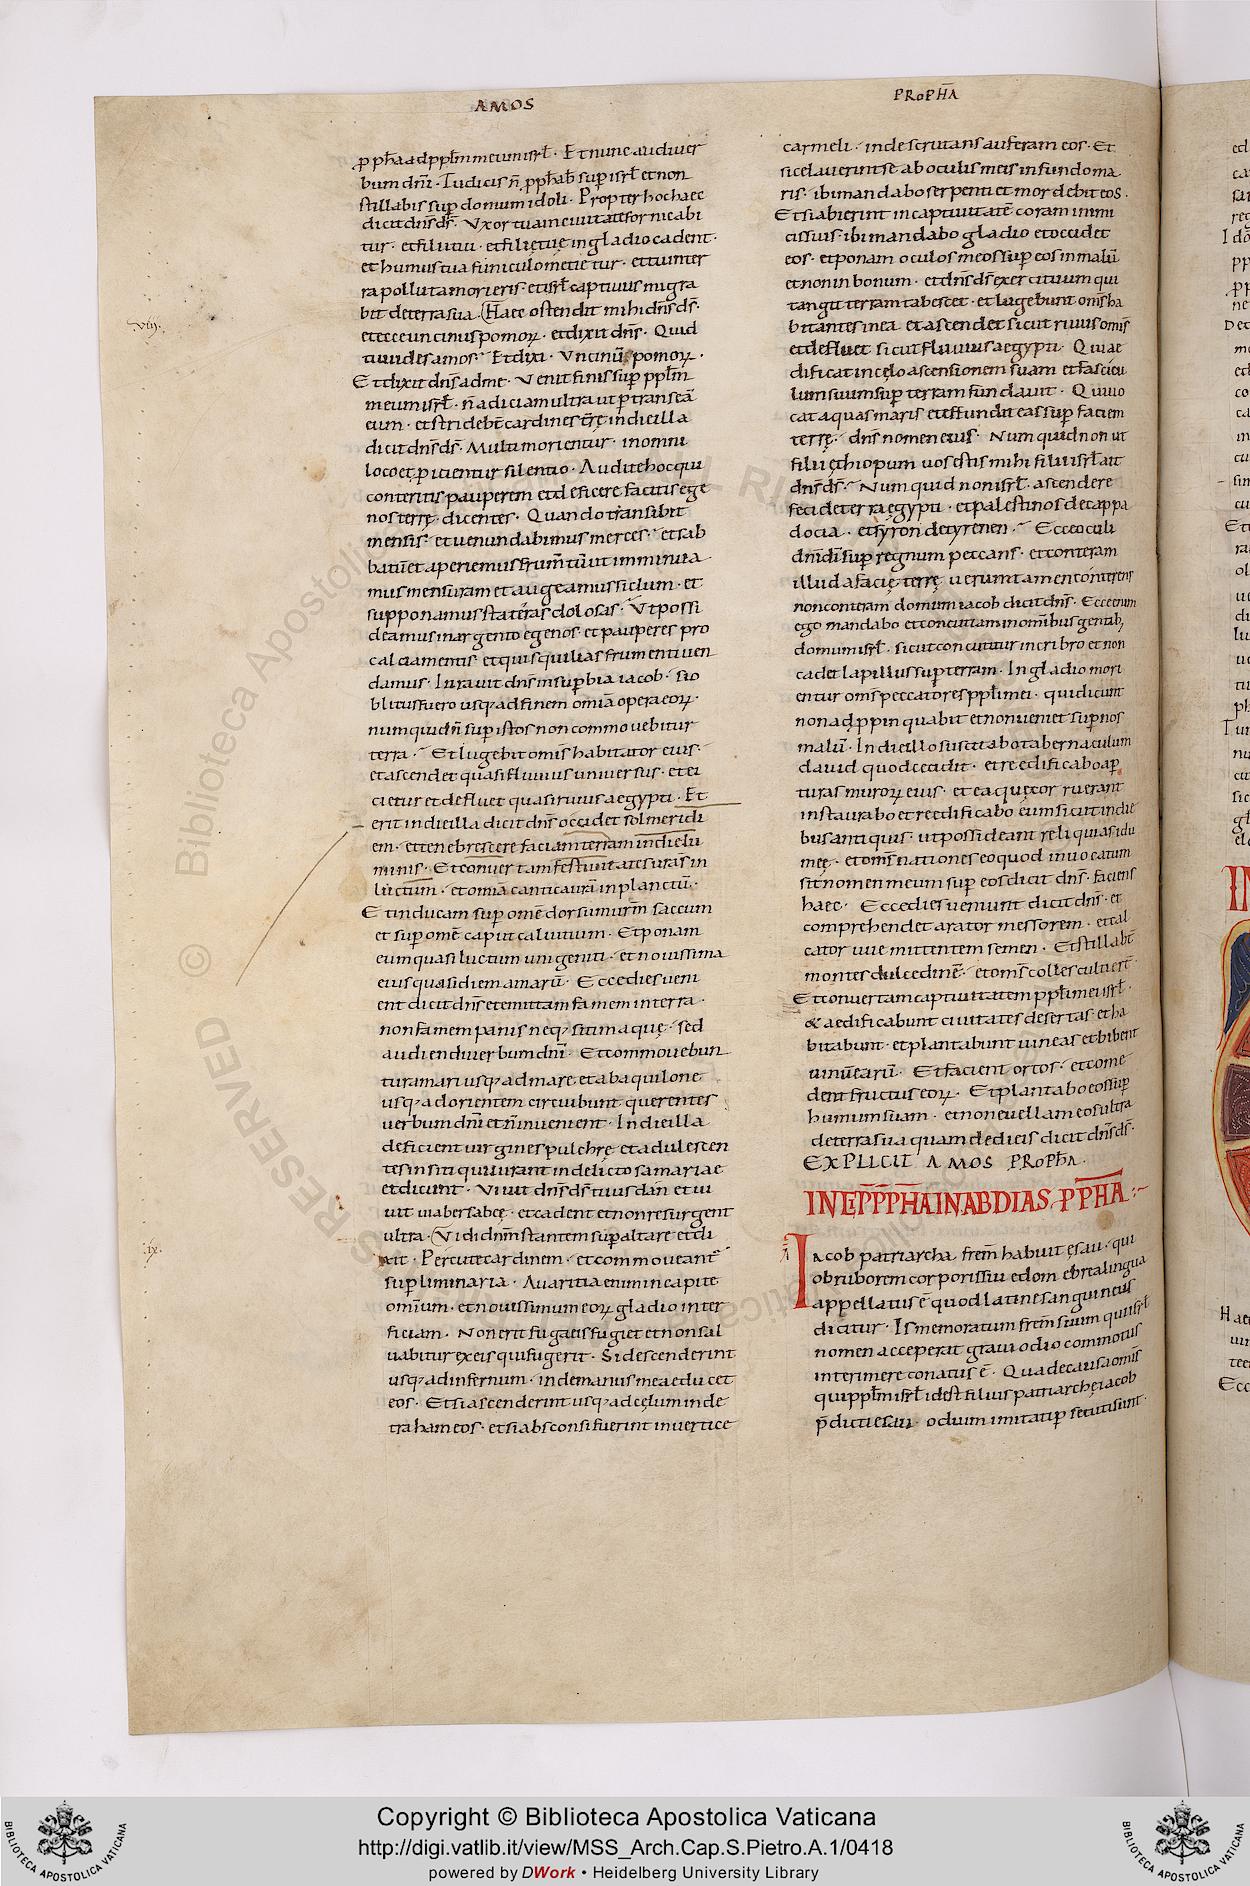 AMOS
PROPHA
p pha ad pplm meum isrl. Et nunc audi ver
bum dni. Tu dicis n pphab sup isrl et non
stillabis sup domum idoli. Propter hoc haec
dicit dns ds. Uxor tua in civitate fornicabi
tur. et filii tui. et filię tuę in gladio cadent.
et humus tua funiculo metietur. et tu in ter
ra polluta morieris. et isrl captivus migra
bit de terra sua. Haec ostendit mihi dns ds.
VIII.
et ecce uncinus pomorum. et dixit dns. Quid
tu vides amos. Et dixi. Uncinū pomorum.
Et dixit dns ad me. Venit finis sup pplm
meum isrl. n adiciam ultra ut ptranseā
eum. et stridebt cardines in die illa
dicit dns ds. Multi morientur. in omni
loco et picientur silentio. Audite hoc qui
conteritis pauperem et deficere facitis ege
nos terrę. dicentes. Quando transibit
mensis. et venundabimus merces. et sab
batū et aperiemus frumtū ut imminua
mus mensuram et augeamus siclum. et
supponamus stateras dolosas. Ut possi
deamus in argento egenos et pauperes pro
calciamentis. et quisquilias frumenti ven
damus. Iuravit dns in supbia iacob. si o
blitus fuero usq; ad finem omīa opera eorum.
numquid n sup istos non commovebitur
terra. Et lugebit omis habitator eius.
et ascendet quasi fluvius universus. et ei
cietur et defluet quasi rivus aegypti. Et
erit in die illa dicit dns occidet sol meridi
em. et tenebrescere faciam terram in die lu
minis. Et convertam festivitates uras in
luctum. et omīa cantica ura in planctū.
Et inducam sup omē dorsum urm saccum
et sup omē caput calvitium. Et ponam
eum quasi luctum unigeniti. et novissima
eius quasi diem amarū. Ecce dies veni
ent dicit dns et emittam famem in terra.
non famem panis neq; sitim aquę. sed
audiendi verbum dni. Et commovebun
tur a mari usq; ad mare. et ab aquilone
usq; ad orientem circuibunt querentes
verbum dni et n invenient. In die illa
deficient virgines pulchrę et adulescen
tes in siti qui iurant in delicto samariae
et dicunt. Vivit dns ds tuus dan et vi
vit via bersabeę. et cadent et non resurgent
ultra. Vidi dnm stantem sup altare et di
IX.
xit. Percute cardinem. et commoveant
supliminaria. Avaritia enim in capite
omīum. et novissimum eorum gladio inter
ficiam. Non erit fuga eis fugiet et non sal
vabitur ex eis qui fugerit. Si descenderint
usq; ad infernum. inde manus mea educet
eos. Et si ascenderint usq; ad cęlum inde
traham eos. et si absconsi fuerint in vertice
carmeli. inde scrutans auferam eos. Et
si celaverint se ab oculis meis in fundo ma
ris. ibi mandabo serpenti et mordebit eos.
Et si abierint in captivitatē coram inimi
cis suis. ibi mandabo gladio et occidet
eos. et ponam oculos meos sup eos in malū
et non in bonum. et dns ds exercituum qui
tangit terram tabescet. et lugebunt oms ha
bitantes in ea. et ascendet sicut rivus omis
et defluet sicut fluvius aegypti. Qui ae
dificat in cęlo ascensionem suam et fascicu
lum suum sup terram fundavit. Qui vo
cat aquas maris et effundit eas sup faciem
terrę. dns nomen eius. Numquid non ut
filii ęthiopum vos estis mihi filii isrl ait
dns ds. Numquid non isrl. ascendere
feci de terra egypti. et palestinos de cappa
docia. et syros de cyrenen. Ecce oculi
dni di sup regnum peccans. et conteram
illud a facię terrę. verumtamen conterens
non conteram domum iacob dicit dns. Ecce enim
ego mandabo et concutiam in omībus gentib;
domum isrl. sicut concutitur in cribro et non
cadet lapillus sup terram. In gladio mori
entur oms peccatores ppli mei. qui dicunt
non adppinquabit et non veniet sup nos
malū. In die illo suscitabo tabernaculum
david quod cecidit. et reedificabo ap
turas murorum eius. et ea quę corruerant
instaurabo et reedificabo eum sicut in die
bus antiquis. ut possideant reliquias idu
męę. et oms nationes eo quod invocatum
sit nomen meum sup eos dicit dns. faciens
haec. Ecce dies veniunt dicit dns. et
comprehendet arator messorem. et cal
cator uve mittentem semen. Et stillabt
montes dulcedinē. et oms colles culti ert.
Et convertam captivitatem ppli mei isrl.
& aedificabunt civitates desertas. et ha
bitabunt. et plantabunt vineas et bibent
vinū earū. Et facient ortos. et come
dent fructus eorum. Et plantabo eos sup
humum suam. et non evellam eos ultra
de terra sua quam dedi eis dicit dns ds.
EXPLICIT AMOS PROPHA.
IN EPPPHA IN ABDIAS. PPHA.
Iacob patriarcha frem habuit ęsau. qui
ob ruborem corporis sui edom ebrea lingua
appellatus ē quod latine sanguineus
dicitur. Is memoratum frem suum qui isrl
nomen acceperat gravi odio commotus
interimere conatus ē. Qua de causa omis
qui pplm isrl idest filius patriarchę iacob
pdicti esau. odium imitati p secuti sunt.
Copyright © Biblioteca Apostolica Vaticana
http://digi.vatlib.it/view/MSS_Arch.Cap.S.Pietro.A.1/0418
powered by DWork • Heidelberg University Library